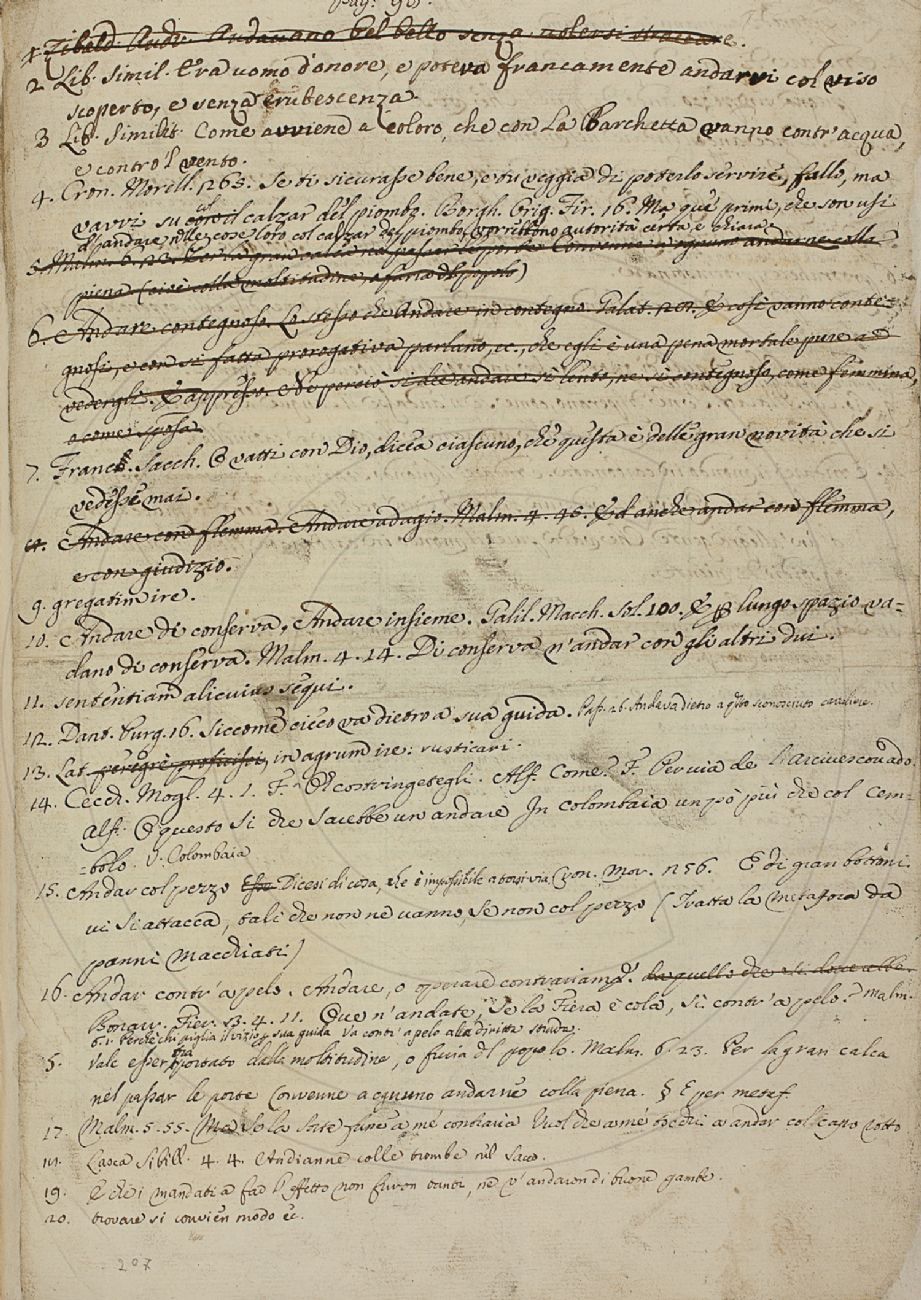 pag: 95.
1. Zibald. Andr. Andavano bel bello senza volersi straccare.
2. Lib. Simil. Era uomo d'onore, e poteva francamente andarvi col viso
scoperto, e senza erubescenza.
3 Lib. Similit. Come avviene a coloro, che con la Barchetta vanno contr'acqua,
e contro 'l vento.
4. Cron. Morell. 263. Se ti sicurasse bene, e tu veggia di poterlo servire, fallo, ma
vavvi su col calzar del piombo. Borgh. Orig. Fir. 16. Ma que' primi, che son usi
d'andare nelle cose loro col calzar del piombo, vorrebbono autorità certa, e chiara
5. Malm. 6. 23. Per la gran calca nel passar le porte Convenne a ognuno andarne colla
piena (cioè colla moltitudine, e furia del popolo)
6. Andare contegnoso. Lo stesso che Andare in contegno. Galat. E così vanno conte-
gnosi, e con si fatta prorogativa parlano, ec., che egli è una pena mortale pure a
vedergli. E appresso. Ne perciò si dee andare sì lento, ne sì contegnoso, come femmina,
o come sposa.
7. Franc. Sacch. O vatti con Dio, dicea ciascuno, che questa è delle gran novità che si
vedesse mai.
Andare con flemma. Andare adagio. Malm. 4. 46. Ed anche andar con flemma,
e con giudizio.
9. gregatim ire.
10. Andare di conserva. Andare insieme. Galil. Macch. Sol. 100. E p lungo spazio va-
dano di conserva. Malm. 4. 14. Di conserva n'andar con gli altri dui.
11. sententiam alicuius sequi.
12. Dant. Purg. 16. Siccome cieco va dietro a sua guida. Andava dietro a
13. Lat. peregre proficisci, in agrum ire: rusticari.
14. Cecch. Mogl. 4. 1. F. O costringetegli. Alf. Come? F. Per via de l'Arcivescovado.
Alf. O questo si che sarebbe un andare In colombaia un po' più che col cem-
=bolo. V. Colombaia
15. Andar col pezzo Dicesi di cosa, che è impossibile a torsi via, Cron. Mor. n 56. E di gran bottoni
vi si attacca, tali che non ne vanno, se non col pezzo (Tratta la metafora da
panni macchiati)
16. Andar contr'a pelo. Andare, o operare contrariam.te
Bonarr. Fier. 3. 4. 11. Que n'andate, se la Fiera è colà, sì contr'a pelo? Malm.
6. 1. Perche chi piglia il vizio p sua guida Va contr'a pelo alla diritta strada.
5. Vale esser portato dalla moltitudine, o furia del popolo. Malm. 6. 23. Per la gran calca
nel passar le porte Convenne a ognuno andarne colla piena. § E per metaf.
17. Malm. 5. 55. Ma se la sorte a me contraria Vuol che a me tocchi a andar col capo rotto
Lasca Sibill. 4. 4. Andianne colle trombe nel sacco.
19. E che i mandati a far l'effetto non furon tanti, ne v'andaron di buone gambe.
20. trovare si convien modo ec.
207